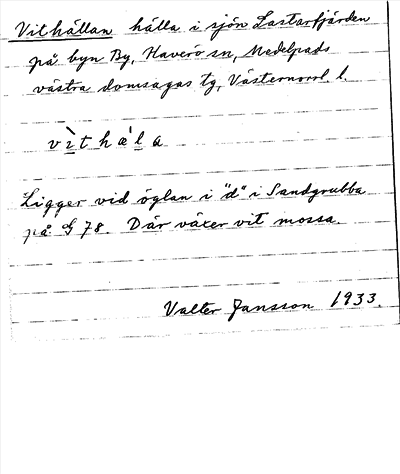 Vithällan hälla i sjön Lastarfjärden
på byn By, Haverö sn, Medelpads
västra domsagas tg, Västernorrl. l.
vìthála
Ligger vid öglan i "d" i Sandgrubba
på G 78. Där växer vit mossa.
Valter Jansson 1933.